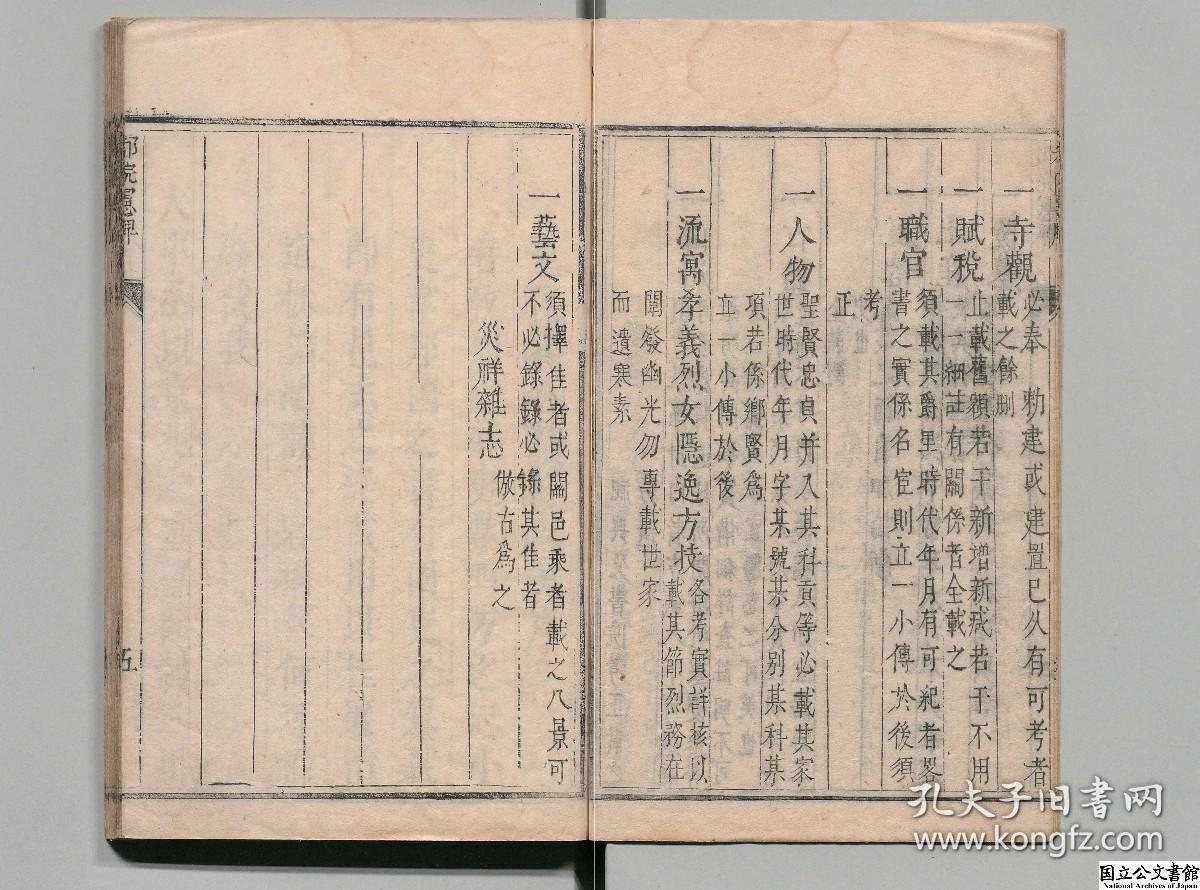 一寺觀必奉 勅建或建置已久有可考者
載之餘刪
一賦稅止載舊額若干新增新戓若干不用
一一細註有關係者全載之
一職官須載其爵里時代年月有可紀者畧
書之實係名宦則立一小傳於後須
考
正
一人物聖賢忠貞并入其科貢等必載其家
世時代年月字某號某分別某科某
項若係鄉賢爲
立一小傳於後
一流寓孝義烈女隱逸方技各考實詳核以
載其節烈務在
闡發幽光勿專載世家
而遺寒素
一藝文須擇佳者或關邑乘者載之八景可
不必錄錄必錄其佳者
災祥雜志倣古爲之
部院憲牌
伍
孔夫子旧书网
www.kongfz.com
国立公文書館
National Archives of Japan